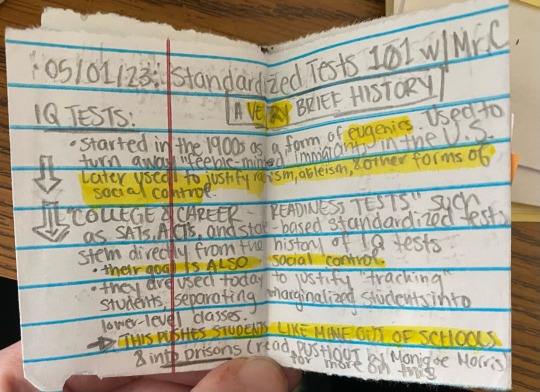 05/01/23: Standardized Tests 101 w/Mr. C
A VERY BRIEF HISTORY
IQ TESTS:
• started in the 1900s as a form of eugenics. Used to
turn away "feeble-minded immigrants" in the U.S.
Later used to justify racism, ableism, & other forms of
social control.
"COLLEGE & CAREER - READINESS TESTS" such
as SATs, ACTs, and state-based standardized tests
stem directly from the history of IQ tests
• their goal IS ALSO social control.
• they are used today to justify "tracking"
students, separating marginalized students into
lower-level classes.
→ THIS PUSHES STUDENTS LIKE MINE OUT OF SCHOOLS
& into prisons (read PUSHOUT by Monique Morris)
for more on this